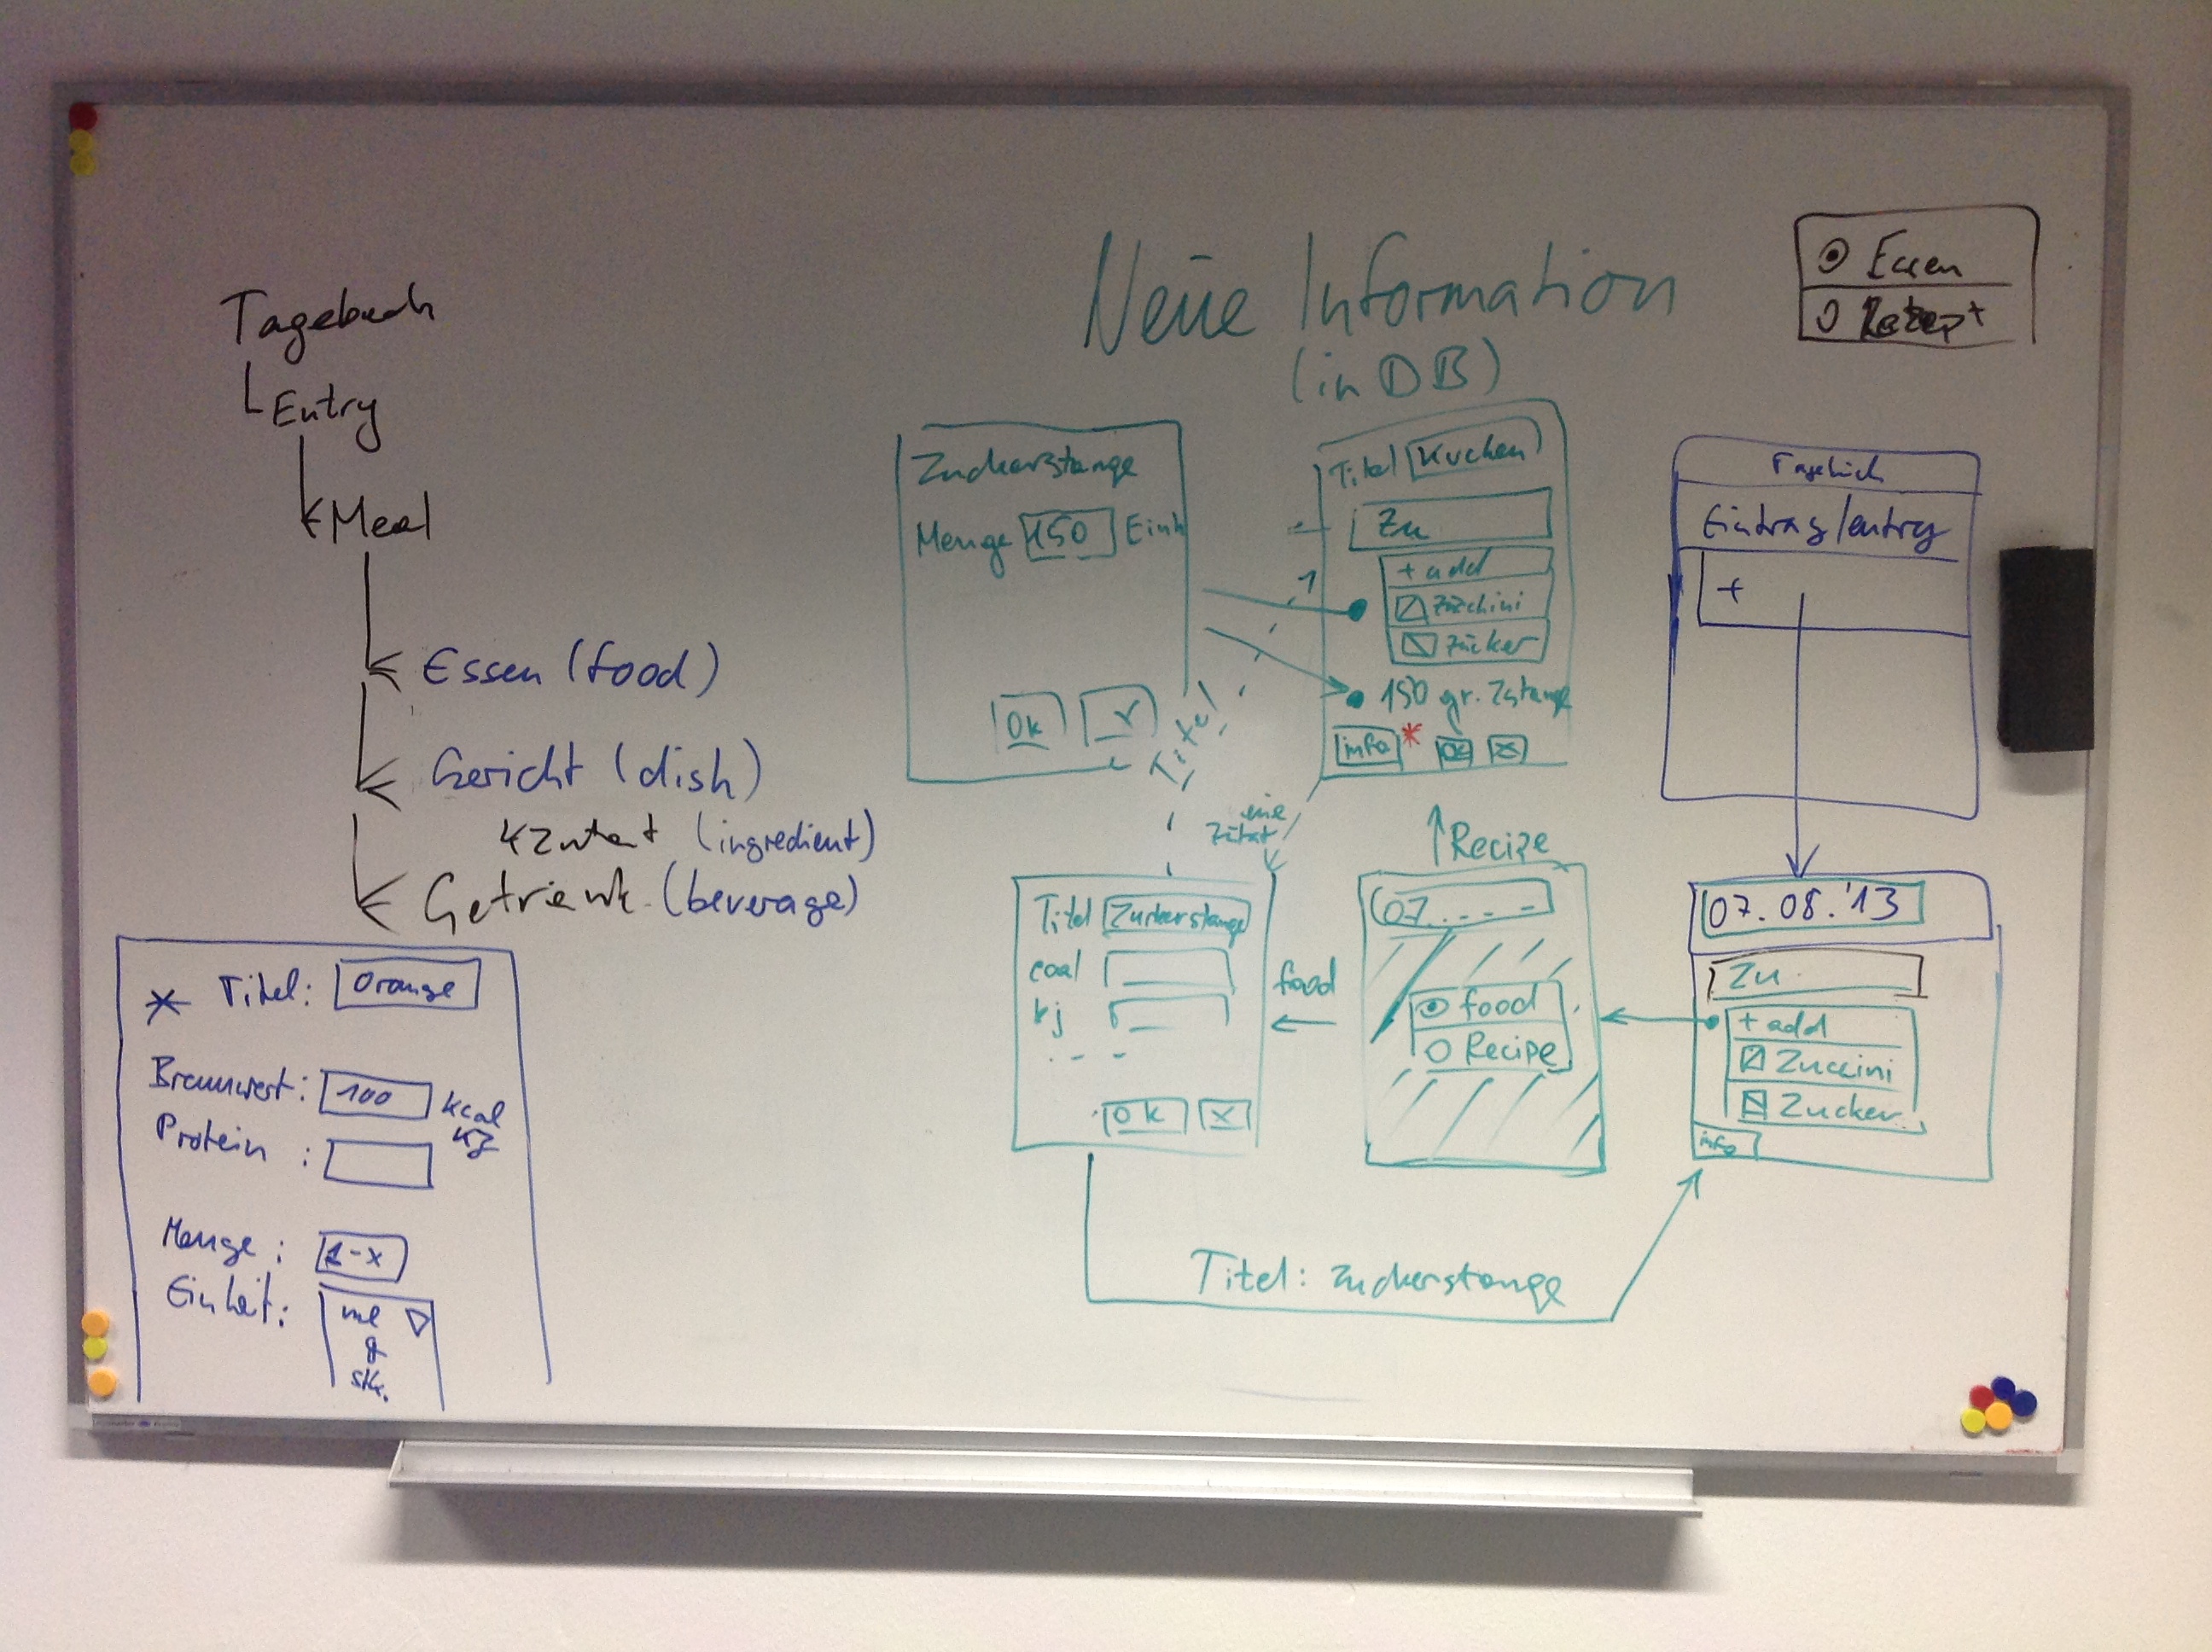 Tagebuch
Entry
Meal
Essen (food)
Gericht (dish)
Zutat (ingredient)
Getränk (beverage)
* Titel: Orange
Brennwert: 100 kcal
kJ
Protein :
Menge: 1-x
Einheit: ml
g
stk.
Neue Information
(in DB)
Zuckerstange
Menge 150 Einh
Ok
Titel
Titel Kuchen
Zu
+ add
Zuchini
Zucker
150 gr. Zstange
info * OK x
eine
Zutat
Recipe
Titel Zuckerstange
coal
kj
- - -
ok x
food
07. - - -
food
Recipe
Titel: Zuckerstange
Essen
Rezept
Tagebuch
Eintrag/entry
+
07.08.'13
Zu
+ add
Zuccini
Zucker
info